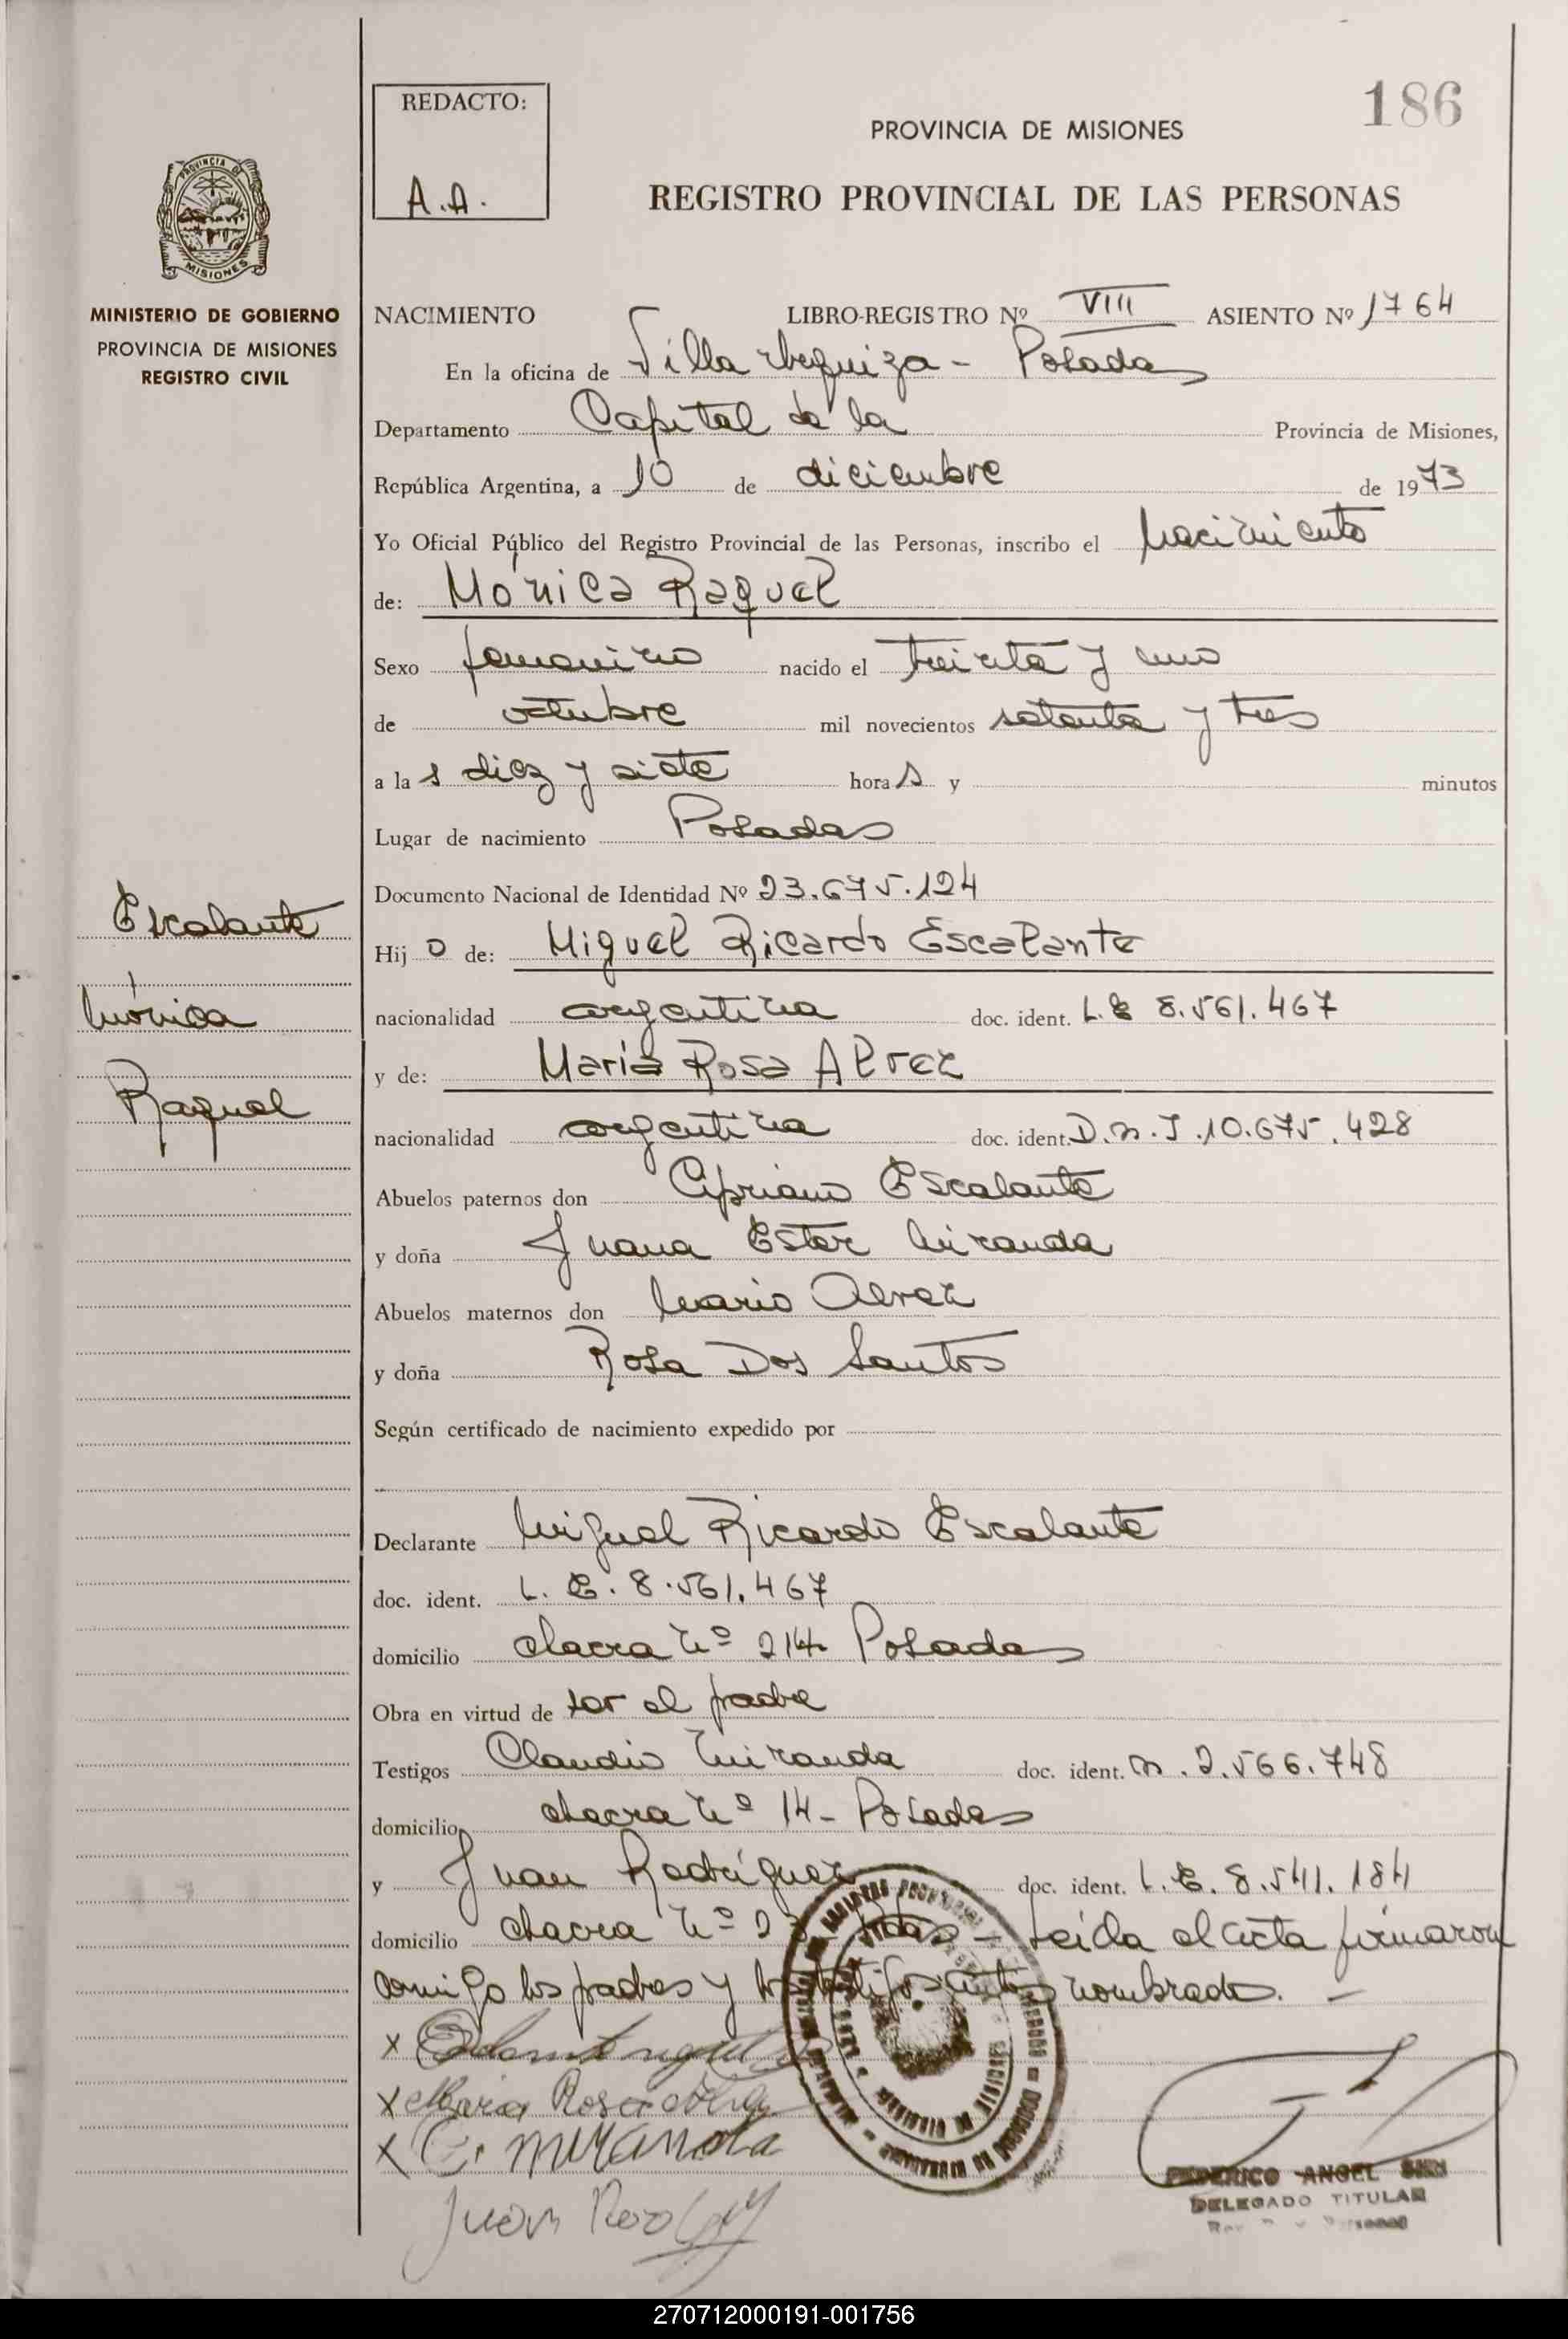 186
REDACTO:
A.A.
PROVINCIA DE MISIONES
REGISTRO PROVINCIAL DE LAS PERSONAS
PROVINCIA DE
MISIONES
MINISTERIO DE GOBIERNO
PROVINCIA DE MISIONES
REGISTRO CIVIL
NACIMIENTO LIBRO-REGISTRO Nº VIII ASIENTO Nº 1764
En la oficina de Villa Urquiza - Posadas
Departamento Capital de la Provincia de Misiones,
República Argentina, a 10 de diciembre de 1973
Yo Oficial Público del Registro Provincial de las Personas, inscribo el Nacimiento
de: Mónica Raquel
Sexo femenino nacido el treinta y uno
de octubre mil novecientos setenta y tres
a la s diez y siete hora s y minutos
Lugar de nacimiento Posadas
Documento Nacional de Identidad Nº 23.675.124
Escalante
Mónica
Raquel
Hij o de: Miguel Ricardo Escalante
nacionalidad argentina doc. ident. L.E 8.561.467
y de: María Rosa Alvez
nacionalidad argentina doc. ident. D.N.I.10.675.428
Abuelos paternos don Cipriano Escalante
y doña Juana Ester Miranda
Abuelos maternos don Mario Alvez
y doña Rosa Dos Santos
Según certificado de nacimiento expedido por
Declarante Miguel Ricardo Escalante
doc. ident. L.E. 8.561.467
domicilio chacra Nº 214 Posadas
Obra en virtud de ser el padre
Testigos Claudio Miranda doc. ident. M. 2.566.748
domicilio chacra Nº 14 - Posadas
y Juan Rodríguez doc. ident. L.E. 8.541.184
domicilio chacra Nº Pdas - Leída el acta firmaron
conmigo los padres y los testigos antes nombrados. -
x
x Maria Rosa Alvez
x C. Miranda
Juan
FEDERICO ANGEL
DELEGADO TITULAR
270712000191-001756